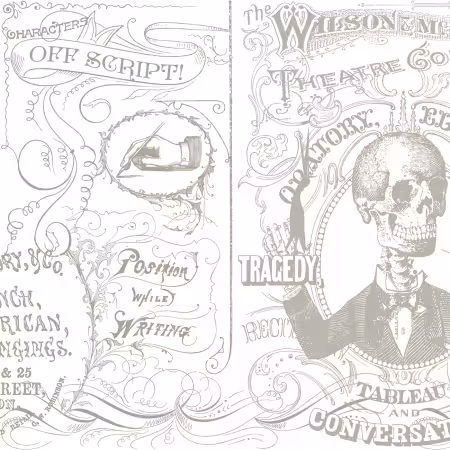 CHARACTERS
OFF SCRIPT!
RY, & Co.
NCH,
RICAN,
NGINGS.
& 25
TREET,
ON.
Position
WHILE
WRITING
The WILSON & M
THEATRE Co
ORATORY, EL
TRAGEDY,
RECIT
TABLEAU
AND
CONVERSAT